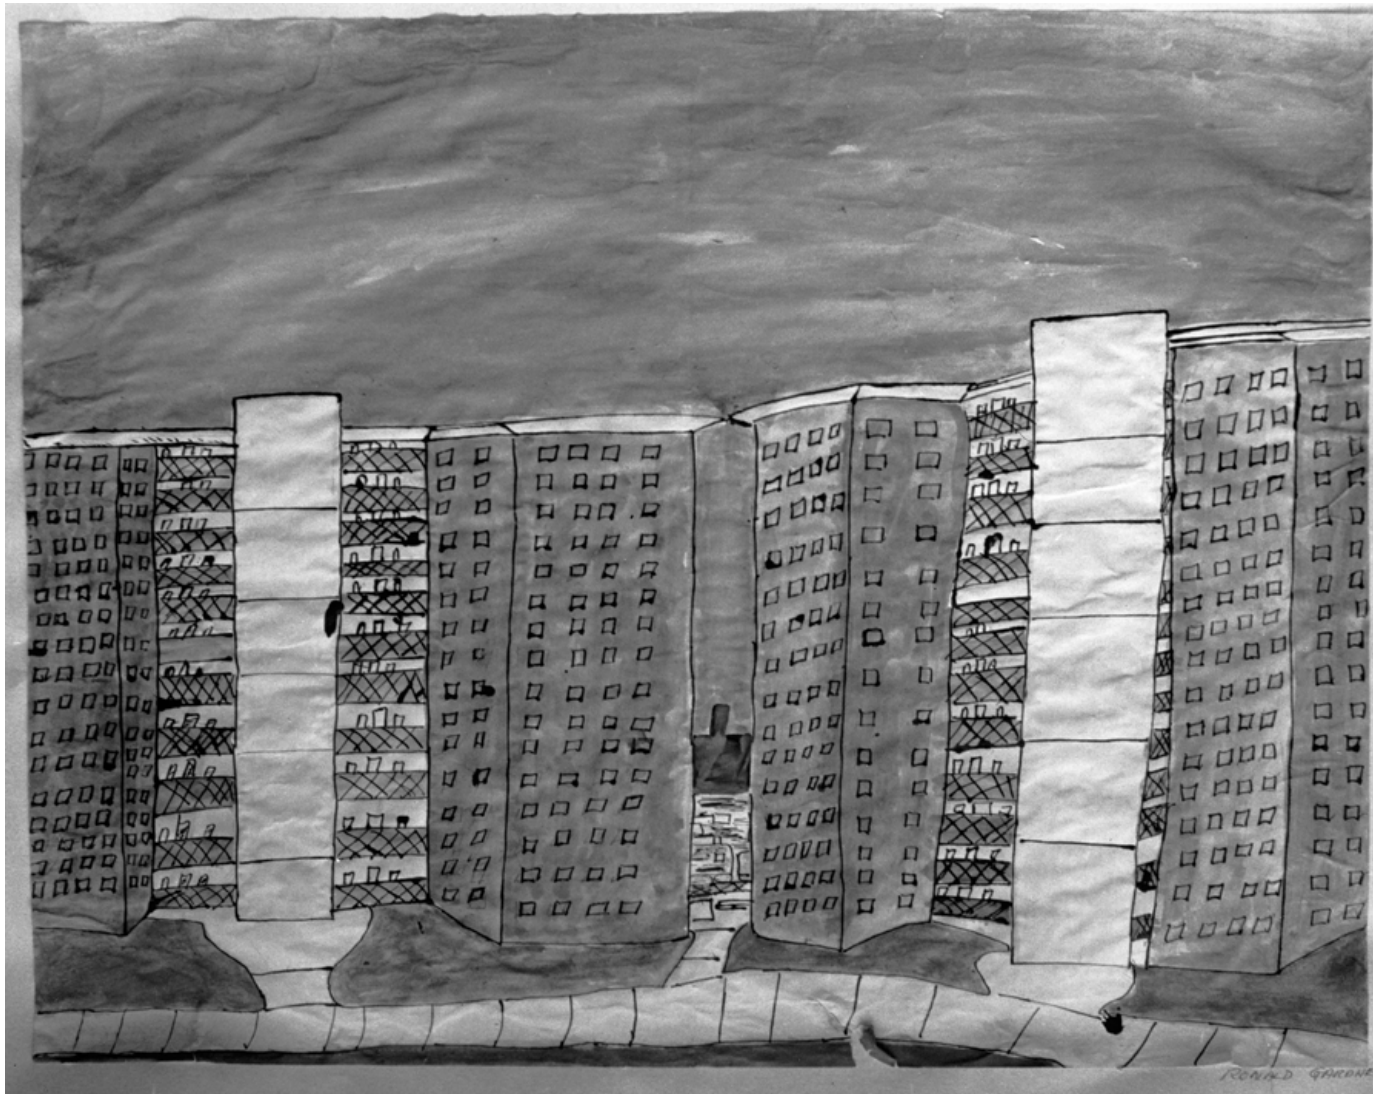 RONALD GARDNE